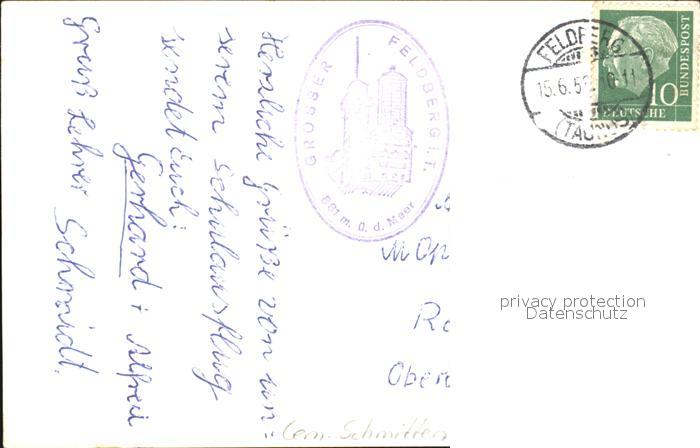 Herzliche Grüße von un=
serem Schulausflug
sendet Euch:
Gerhard + Alfred
Gruß Lehrer Schmidt.
GROSSER FELDBERG i. T.
881 m. ü. d. Meer
FELDBERG
(TAUNUS)
15.6.5
DEUTSCHE BUNDESPOST
10
privacy protection
Datenschutz
Gem. Schmitten